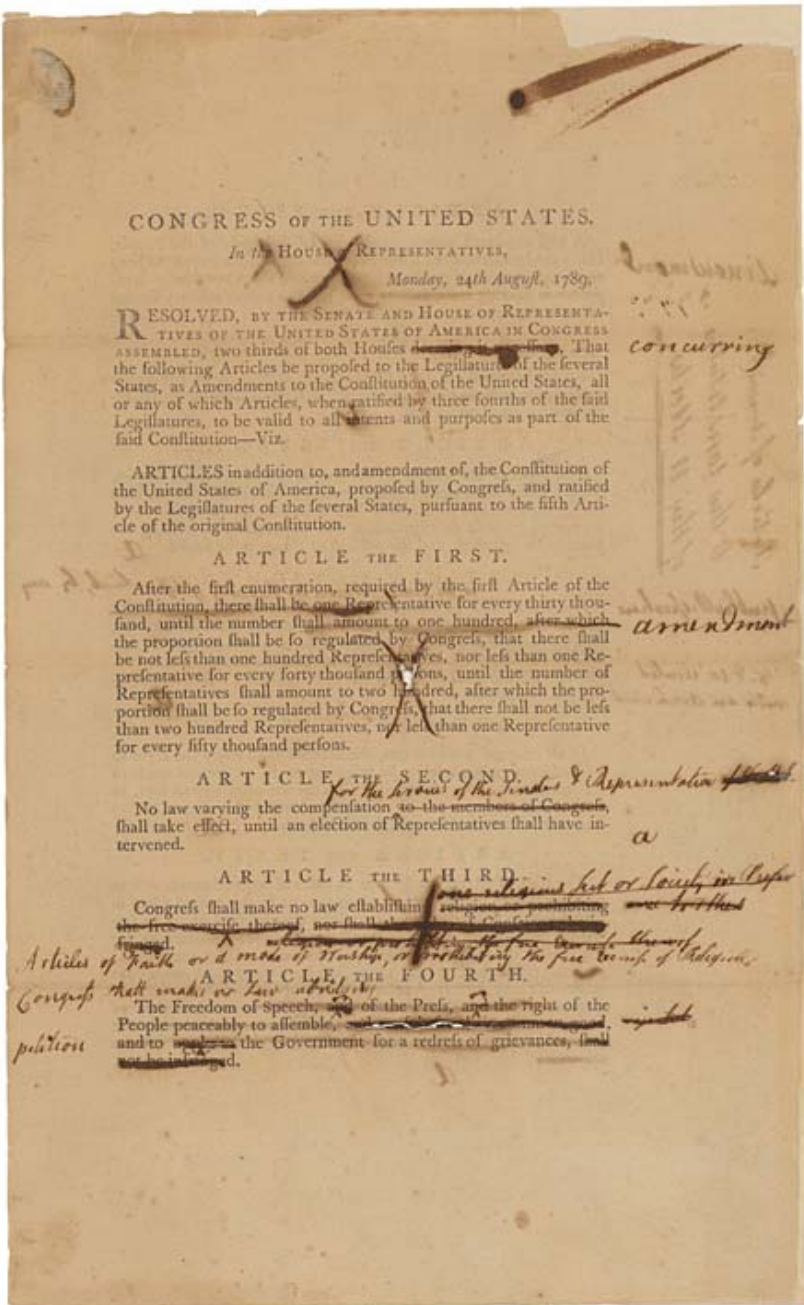 CONGRESS OF THE UNITED STATES.
In the HOUSE of REPRESENTATIVES,
Monday, 24th Auguſt, 1789.
RESOLVED, BY THE SENATE AND HOUSE OF REPRESENTA-
TIVES OF THE UNITED STATES OF AMERICA IN CONGRESS
ASSEMBLED, two thirds of both Houſes That concurring
the following Articles be propoſed to the Legiſlatures of the ſeveral
States, as Amendments to the Conſtitution of the United States, all
or any of which Articles, when ratified by three fourths of the ſaid
Legiſlatures, to be valid to all intents and purpoſes as part of the
ſaid Conſtitution—Viz.
ARTICLES in addition to, and amendment of, the Conſtitution of
the United States of America, propoſed by Congreſs, and ratified
by the Legiſlatures of the ſeveral States, purſuant to the fifth Arti-
cle of the original Conſtitution.
ARTICLE THE FIRST.
After the firſt enumeration, required by the firſt Article of the
Conſtitution, there ſhall be one Repreſentative for every thirty thou-
ſand, until the number ſhall amount to one hundred, after which amendment
the proportion ſhall be ſo regulated by Congreſs, that there ſhall
be not leſs than one hundred Repreſentatives, nor leſs than one Re-
preſentative for every forty thouſand perſons, until the number of
Repreſentatives ſhall amount to two hundred, after which the pro-
portion ſhall be ſo regulated by Congreſs, that there ſhall not be leſs
than two hundred Repreſentatives, nor leſs than one Repreſentative
for every fifty thouſand perſons.
ARTICLE THE SECOND.
for the of the &
No law varying the compenſation to the members of Congreſs,
ſhall take effect, until an election of Repreſentatives ſhall have in-
tervened. a
ARTICLE THE THIRD.
one religious sect or
Congreſs ſhall make no law eſtabliſhing religion or prohibiting
the free exerciſe thereof, nor ſhall
Articles of Faith or a mode of Worship, or prohibiting the free of Religion,
ARTICLE THE FOURTH.
Congress shall make no law abridging
The Freedom of Speech, and of the Preſs, and the right of the
People peaceably to aſſemble,
petition and to the Government for a redreſs of grievances, ſhall
not be infringed.